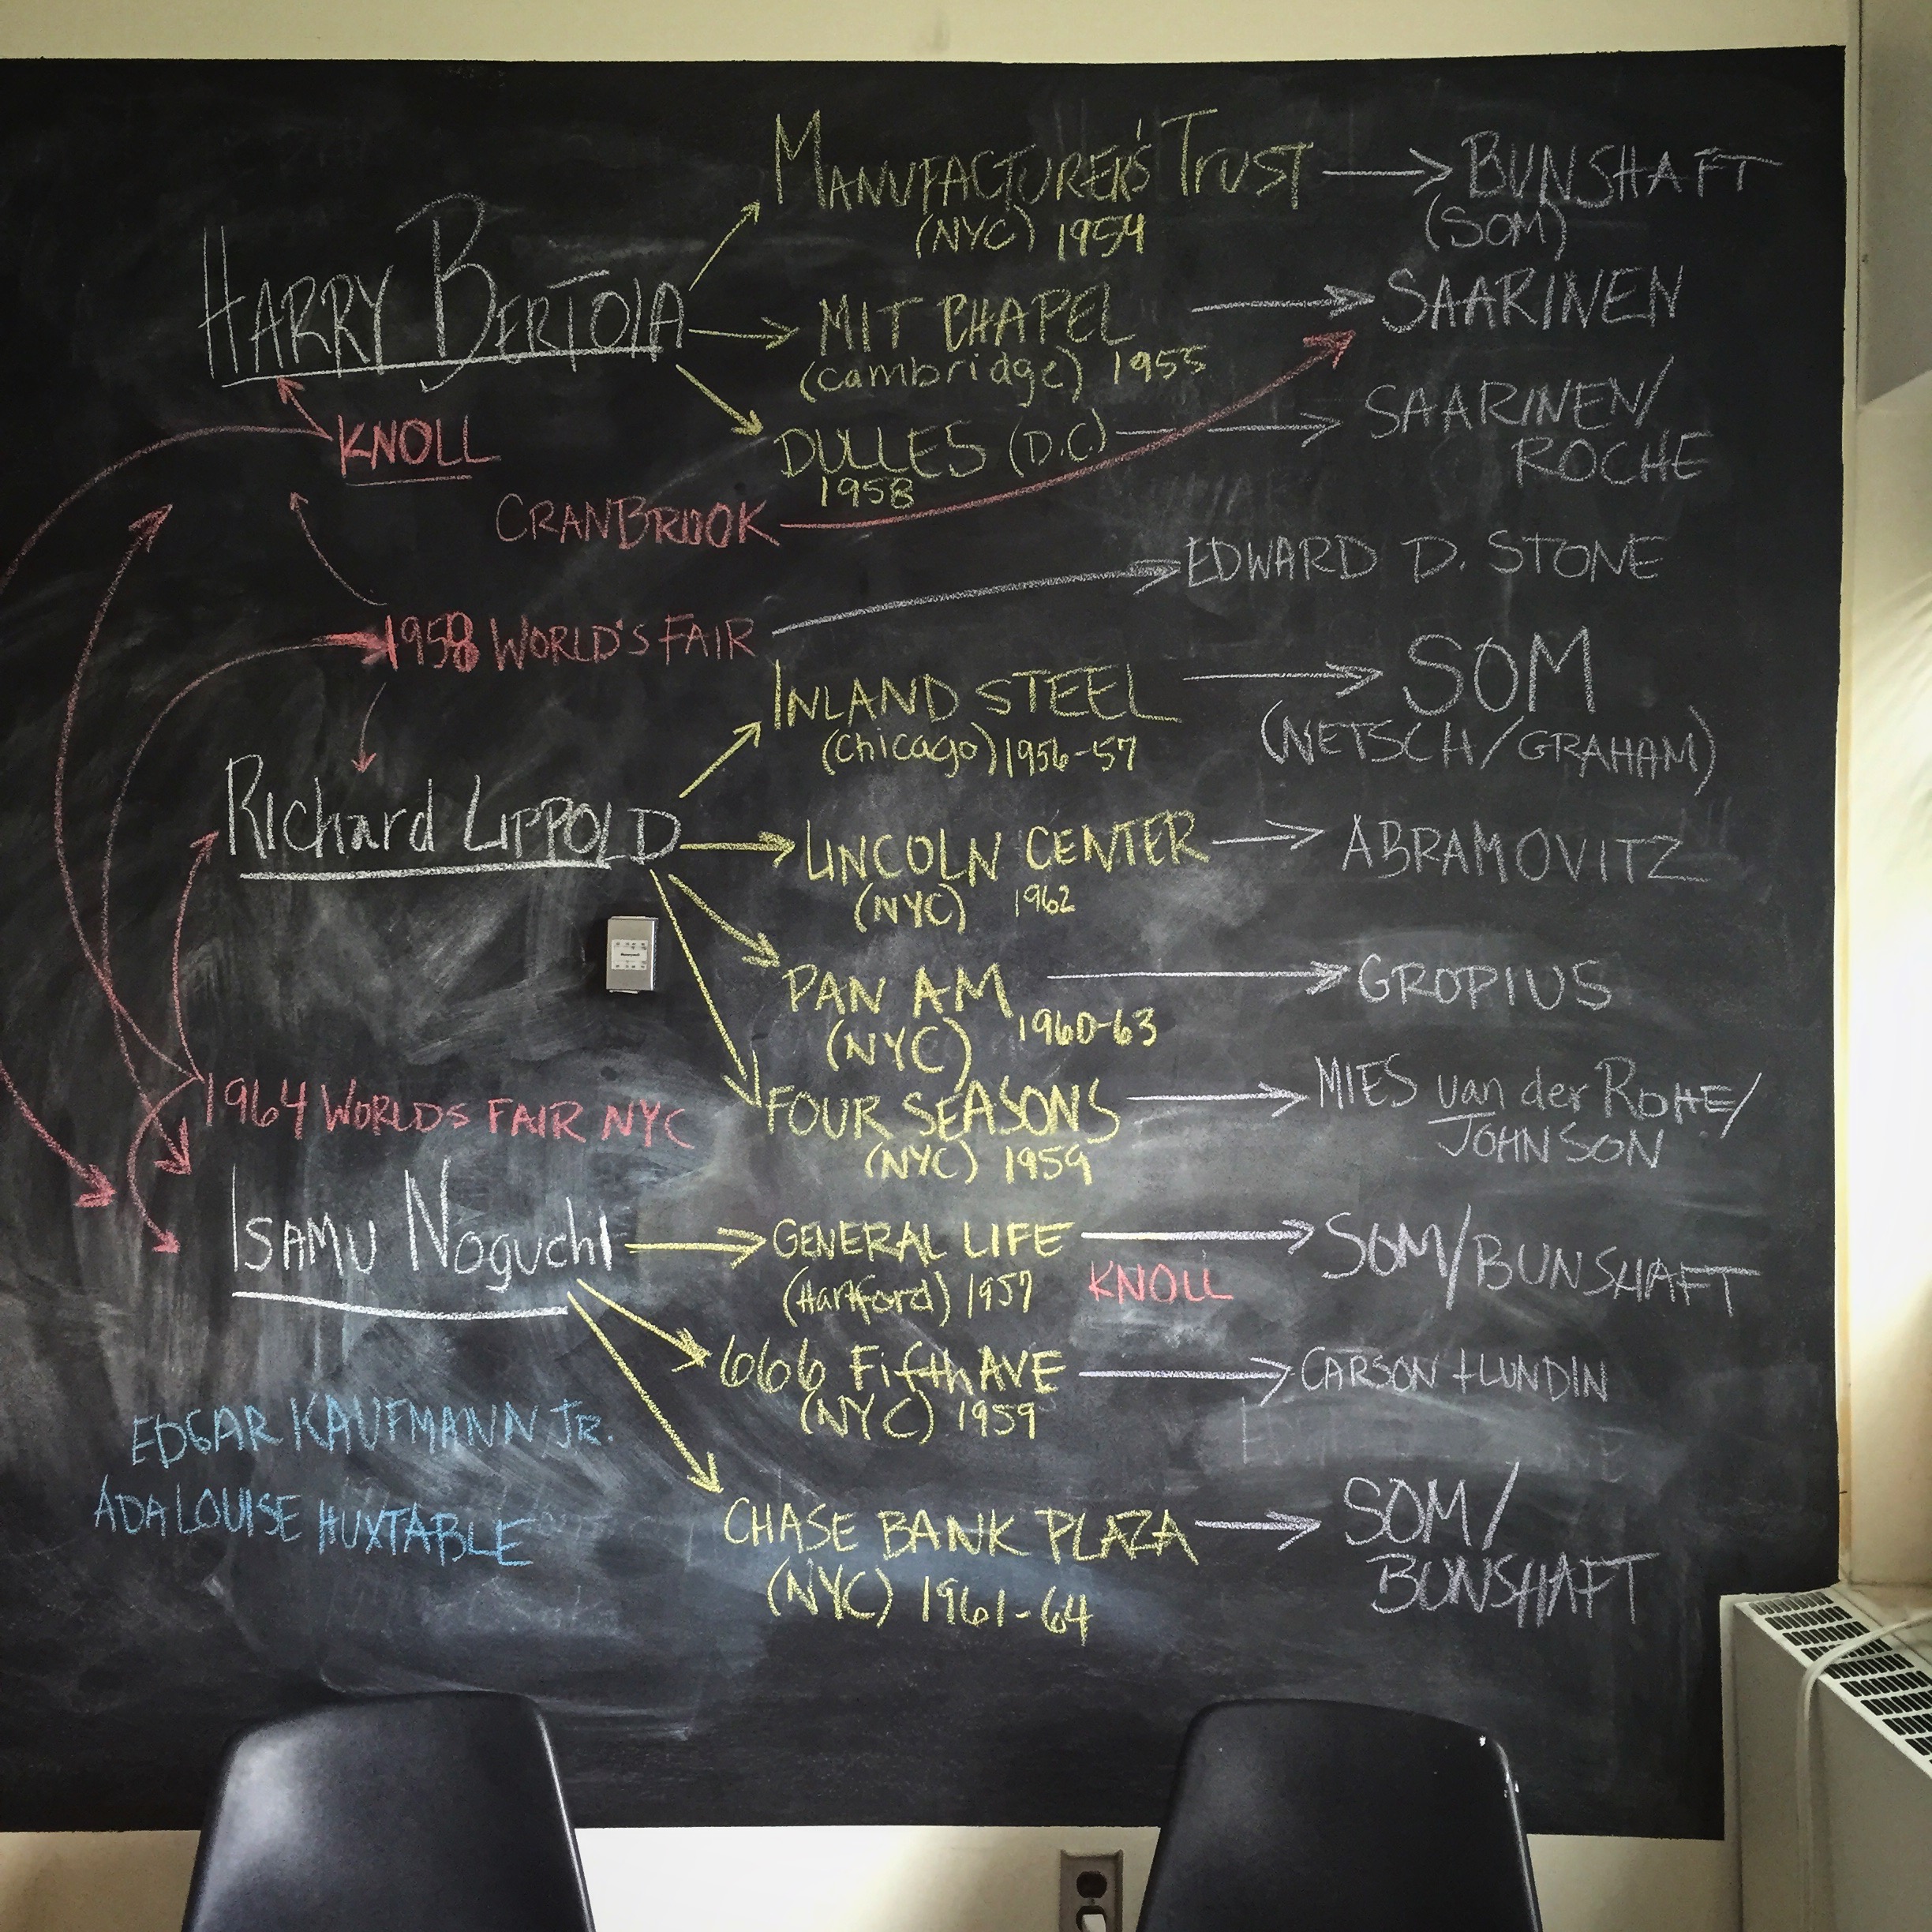 MANUFACTURER'S TRUST → BUNSHAFT
(NYC) 1954 (SOM)
HARRY BERTOIA
MIT CHAPEL → SAARINEN
(cambridge) 1955
KNOLL
DULLES (D.C.) → SAARINEN/
1958 ROCHE
CRANBROOK
EDWARD D. STONE
1958 WORLD'S FAIR
INLAND STEEL → SOM
(chicago) 1956-57 (NETSCH/GRAHAM)
Richard LIPPOLD
LINCOLN CENTER → ABRAMOVITZ
(NYC) 1962
PAN AM → GROPIUS
(NYC) 1960-63
1964 WORLDS FAIR NYC
FOUR SEASONS → MIES van der ROHE/
(NYC) 1959 JOHNSON
ISAMU Noguchi
GENERAL LIFE → SOM/BUNSHAFT
(Hartford) 1957 KNOLL
666 Fifth AVE → CARSON + LUNDIN
(NYC) 1959
EDGAR KAUFMANN JR.
ADA LOUISE HUXTABLE
CHASE BANK PLAZA → SOM/
(NYC) 1961-64 BUNSHAFT